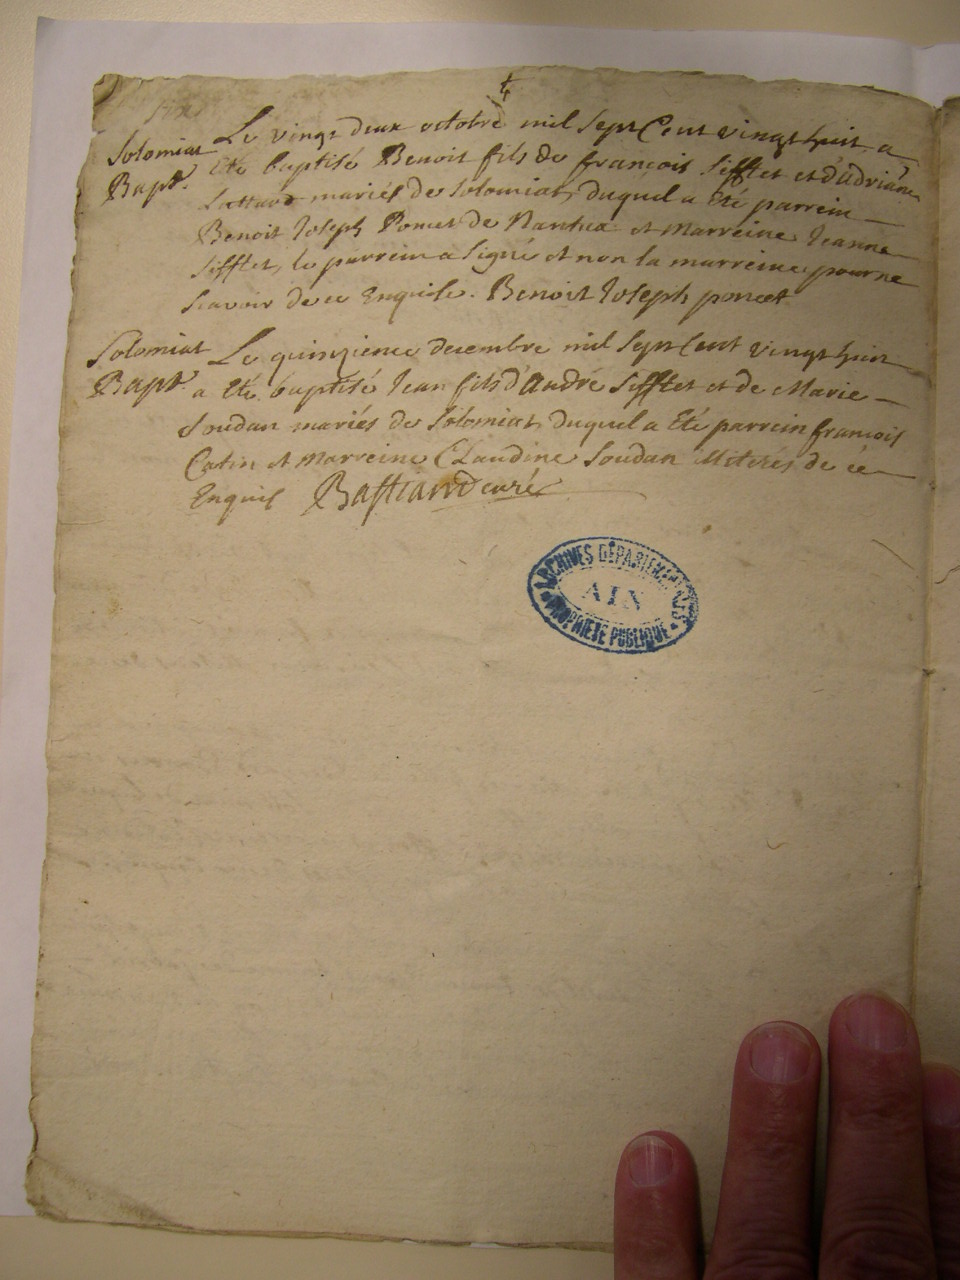 six
Solomiat Le vingt deux octobre mil Sept Cent vingt huit a
Bapt. Eté baptisé Benoit fils de françois Sifflet et d'Udriane
mariés de Solomiat, duquel a Eté parrein
Benoit Joseph Poncet de Nantua et Marreine Jeanne
Sifflet, le parrein a Signé et non la marreine pour ne
Scavoir de ce Enquise. Benoit Joseph poncet
Solomiat Le quinzieme decembre mil Sept Cent vingt huit
Bapt. a Eté baptisé Jean fils d'André Sifflet et de Marie
Soudan mariés de Solomiat, duquel a Eté parrein françois
Catin et Marreine Claudine Soudan illiterés de ce
Enquis Bastiand curé
ARCHIVES DÉPARTEMENTALES
AIN
PROPRIÉTÉ PUBLIQUE